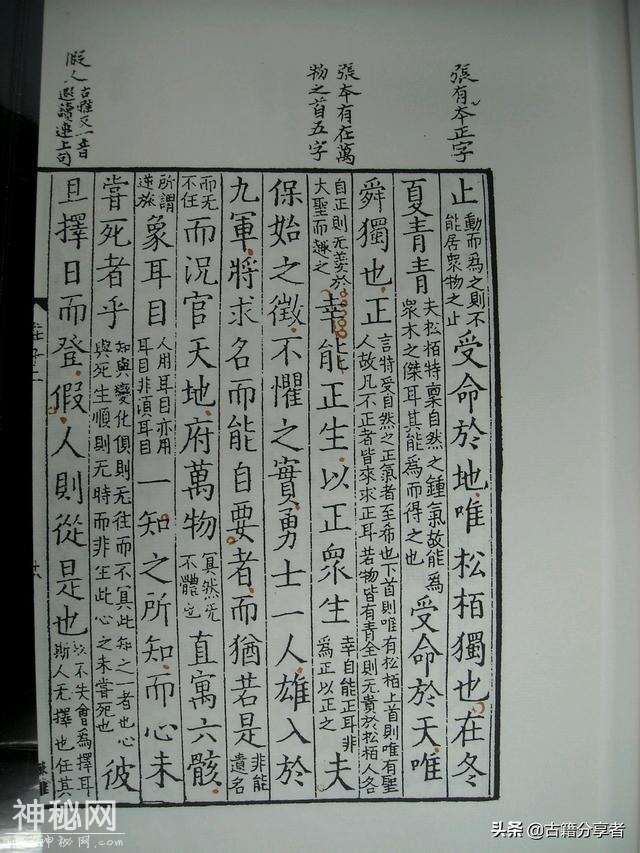 張有本正字
張本有在萬
物之首五字
假人古雅反一音
遐讀連上句
止動而爲之則不能居衆物之止受命於地唯松栢獨也在冬
夏青青夫松栢特稟自然之鍾氣故能爲衆木之傑耳其能爲而得之也受命於天唯
舜獨也正言特受自然之正氣者至希也下首則唯有松栢上首則唯有聖人故凡不正者皆來求正耳若物皆有青全則无貴於松栢人各
自正則无羨於大聖而趣之幸能正生以正衆生幸自能正耳非爲正以正之夫
保始之徵不懼之實勇士一人雄入於
九軍將求名而能自要者而猶若是非能遺名
而无不任而況官天地府萬物冥然无不體也直寓六骸
所謂逆旅象耳目人用耳目亦用耳目非須耳目一知之所知而心未
嘗死者乎知與變化俱則无往而不冥此知之一者也心與死生順則无時而非生此心之未嘗死也彼
且擇日而登假人則從是也以不失會爲擇耳斯人无擇也任其
神秘网
神秘网
头条 @古籍分享者